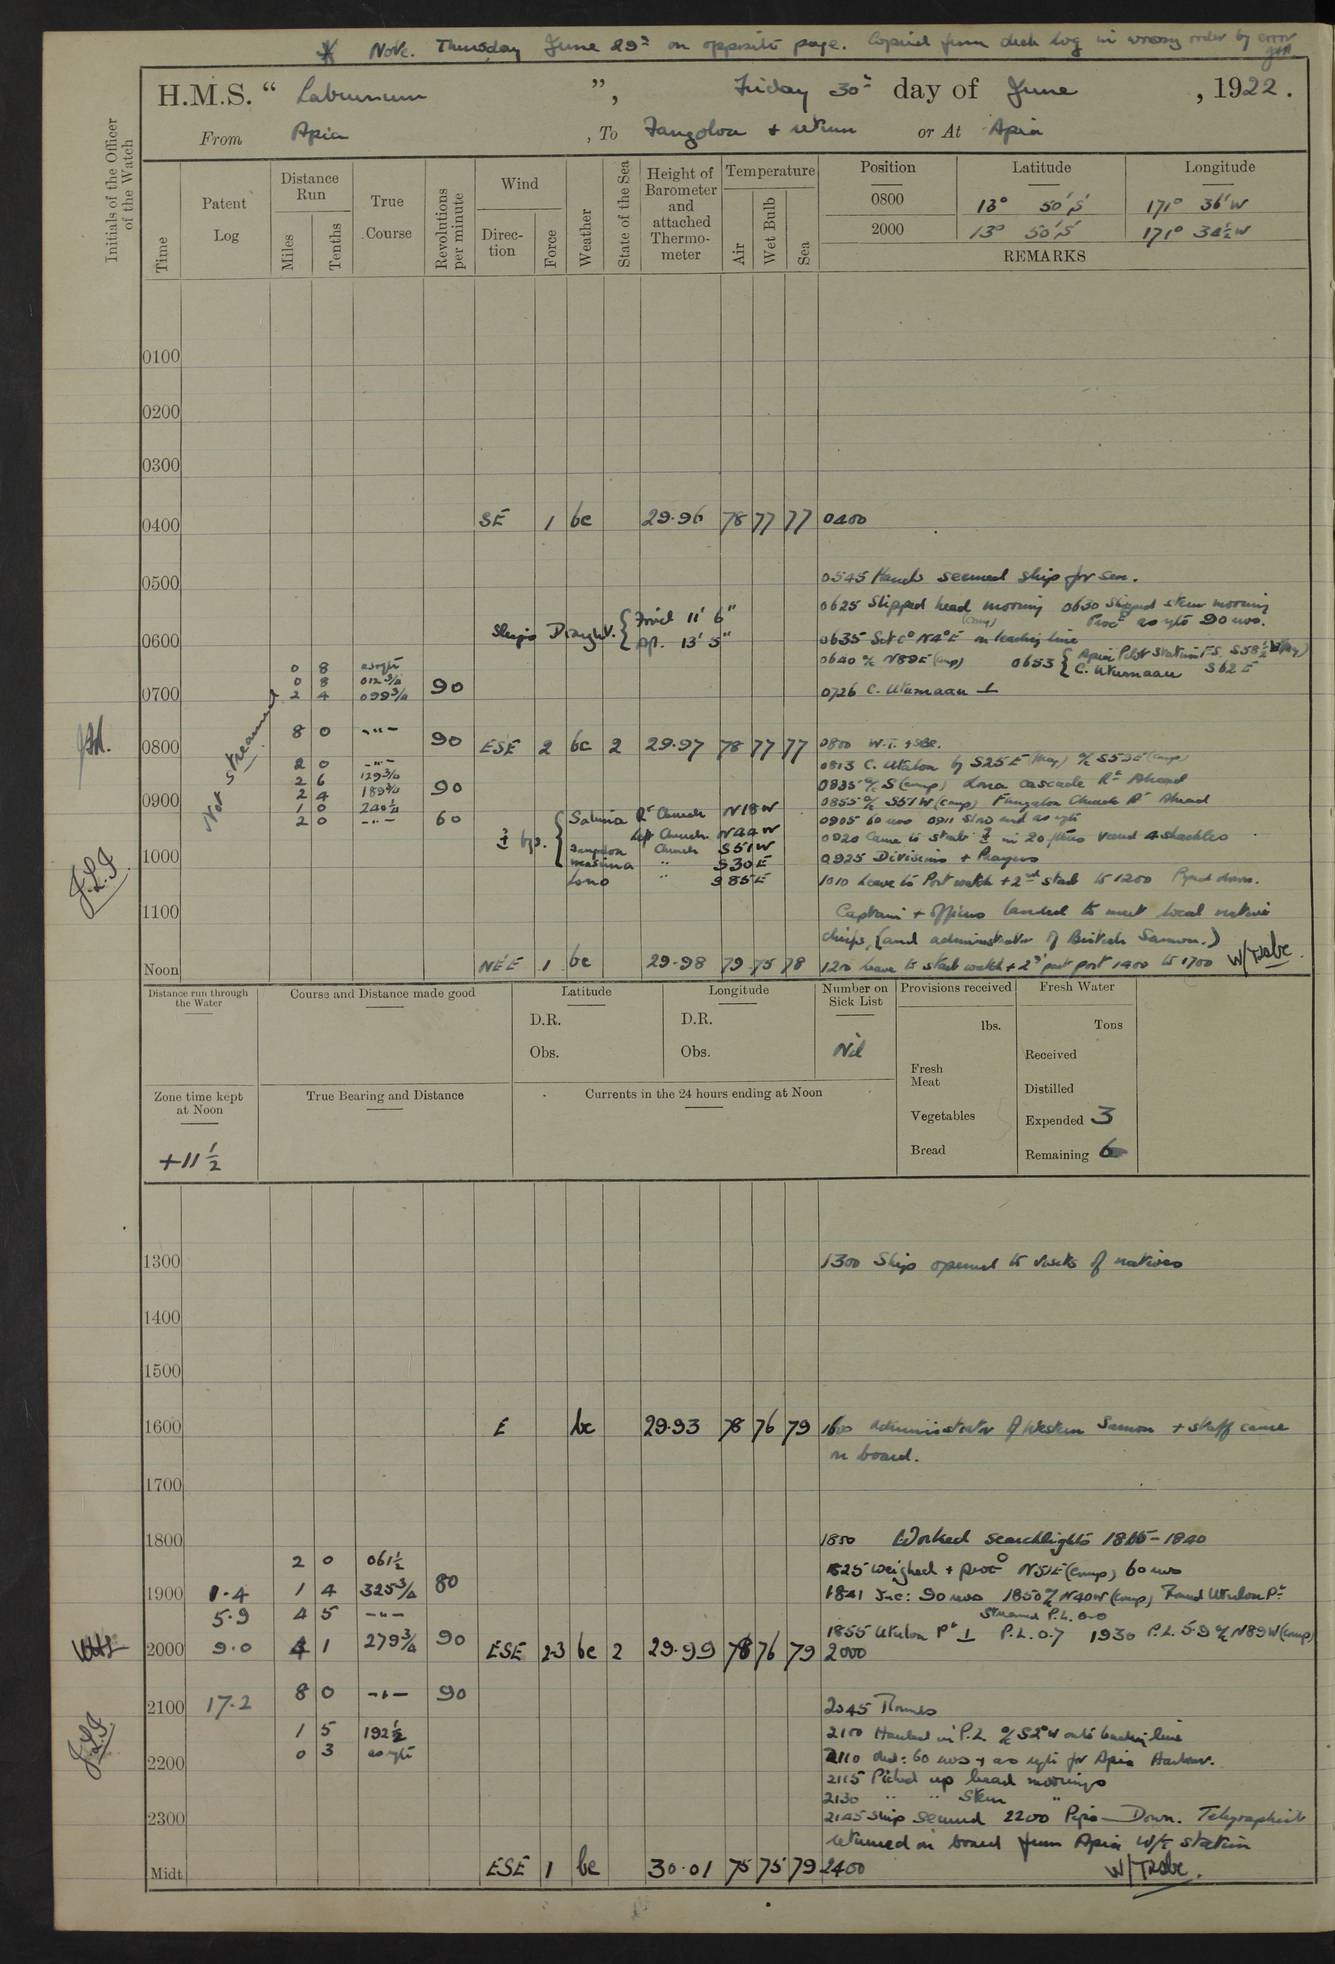 * Note. Thursday June 29th on opposite page. Copied from deck log in wrong order by error
H.M.S. " Laburnum ", Friday 30th day of June, 1922.
From Apia, To Fangaloa + return or At Apia
Initials of the Officer of the Watch
Time
Patent Log
Distance Run
Miles
Tenths
True Course
Revolutions per minute
Wind
Direction
Force
Weather
State of the Sea
Height of Barometer and attached Thermometer
Temperature
Air
Wet Bulb
Sea
Position Latitude Longitude
0800 13° 50' S 171° 36' W
2000 13° 50' S 171° 34½ W
REMARKS
0100
0200
0300
0400 SE 1 bc 29.96 78 77 77 0400
0500 0545 Hands secured ship for sea.
0625 Slipped head mooring 0630 Slipped stern mooring
Proc'd as req'te 90 revs.
Ship's Draught. { For'd 11' 6"
Aft. 13' 5"
0600 0635 Set Co N4°E (comp) on leading line
0 8 as req'te
0640 a/c N89E (comp) 0653 { Apia Pilot Station FS. S58½W (mag)
C. Utumaau S62E
0 8 012¾
0700 2 4 099¾ 90 0726 C. Utumaau ⊥
Not streamed
8 0 -"-
0800 90 ESE 2 bc 2 29.97 78 77 77 0800 W.T. + SBE.
2 0 -"- 0813 C. Utulon by S25E (mag) a/c S53E (comp)
2 6 129¾ 90 0835 a/c S (comp) Lona cascade Rt Ahead
0900 2 4 189¾ 0855 a/c S51W (comp) Fangaloa Church Rt Ahead
1 0 240¼ 60 0905 60 revs 0911 Slow and as req'te
2 0 -"- 0920 Came to starb'd ⚓ in 20 fthms veered 4 shackles
⚓ bgs. { Salimu Rt Church N18W
Left Church N44W
Fangaloa Church S51W
Musumu " S30E
Lono " S85E
1000 0925 Divisions + Prayers
1010 Leave to Port watch + 2nd starb'd to 1200 Piped down.
1100 Captain + officers landed to meet local native
chiefs, (and administrator of British Samoa.)
Noon NE'E 1 bc 29.98 79 75 78 1200 Leave to starb'd watch + 2nd part port 1400 to 1700
Distance run through the Water
Course and Distance made good
Latitude
D.R.
Obs.
Longitude
D.R.
Obs.
Number on Sick List
Nil
Provisions received
lbs.
Fresh Meat
Vegetables
Bread
Fresh Water
Tons
Received
Distilled
Expended 3
Remaining 6
Zone time kept at Noon
+11½
True Bearing and Distance
Currents in the 24 hours ending at Noon
1300 1300 Ship opened to visits of natives
1400
1500
1600 E bc 29.93 78 76 79 1600 Administrator of Western Samoa + staff came
on board.
1700
1800 1850 Worked searchlights 1815-1840
2 0 061½ 1825 Weighed + proc'd N51E (comp) 60 revs
1900 1.4 1 4 325¾ 80 1841 Inc: 90 revs 1850 a/c N40W (comp) Round Utulon Pt
Streamed P.L. 0.0
5.9 4 5 -"- 1855 Utulon Pt ⊥ P.L. 0.7 1930 P.L. 5.9 a/c N89W (comp)
2000 9.0 4 1 279¾ 90 ESE 2.3 bc 2 29.99 78 76 79 2000
2100 17.2 8 0 -"- 90 2045 Rounds
1 5 192½ 2100 Hauled in P.L. a/c S2°W onto leading line
2200 0 3 as req'te 2110 Red: 60 revs + as req'te for Apia Harbour.
2115 Picked up head moorings
2130 " " Stern "
2300 2145 Ship secured 2200 Pipe Down. Telegraphist
returned on board from Apia W/T station
Midt ESE 1 bc 30.01 75 75 79 2400